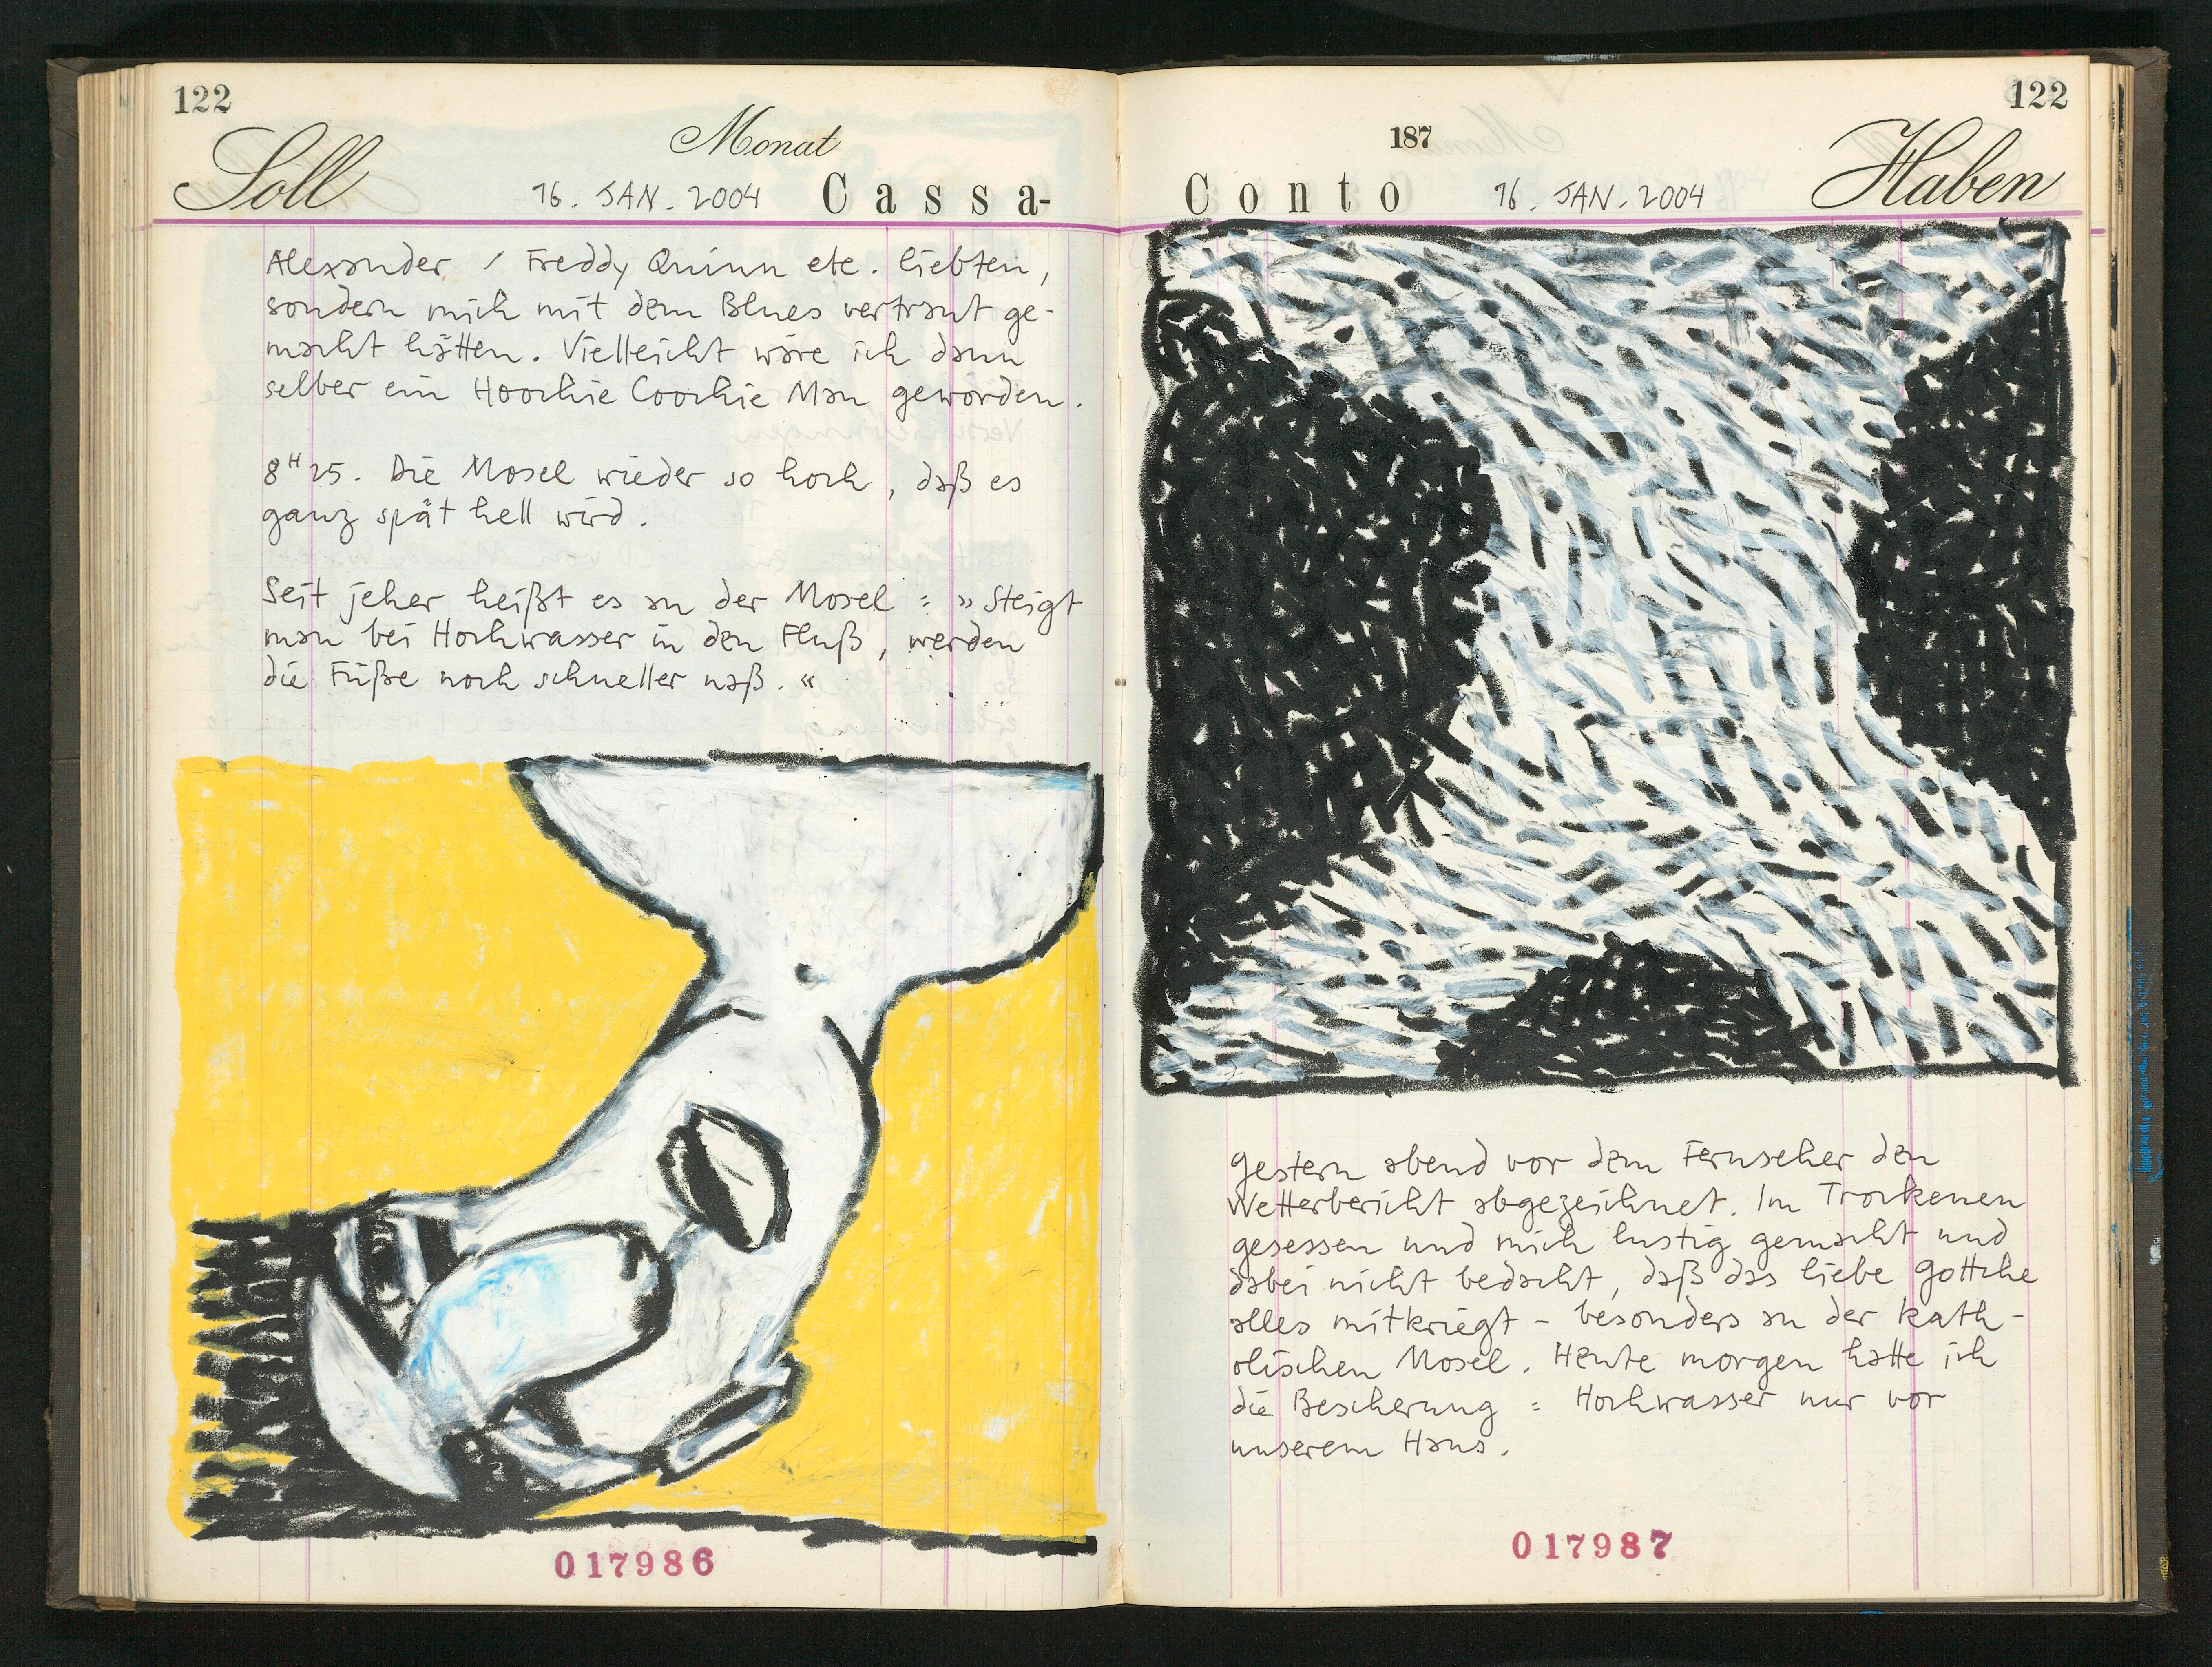 122
Soll
Monat
16. JAN. 2004 Cassa-
Alexander / Freddy Quinn etc. liebten,
sondern mich mit dem Blues vertraut ge-
macht hätten. Vielleicht wäre ich dann
selber ein Hoochie Coochie Man geworden.
8H25. Die Mosel wieder so hoch, daß es
ganz spät hell wird.
Seit jeher heißt es an der Mosel: »Steigt
man bei Hochwasser in den Fluß, werden
die Füße noch schneller naß.«
017986
122
187
Conto 16. JAN. 2004 Haben
gestern abend vor dem Fernseher den
Wetterbericht abgezeichnet. Im Trockenen
gesessen und mich lustig gemacht und
dabei nicht bedacht, daß das liebe Gottche
alles mitkriegt - besonders an der kath-
olischen Mosel. Heute morgen hatte ich
die Bescherung: Hochwasser nur vor
unserem Haus.
017987